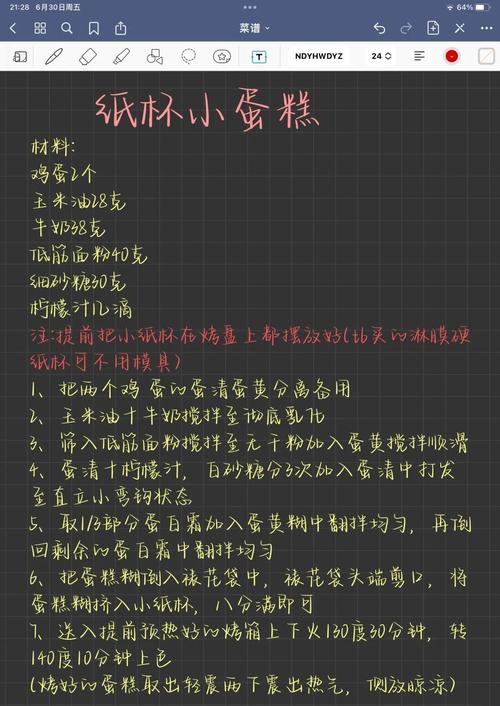 21:28 6月30日周五
64%
菜谱
NDYHWDYZ 24
纸杯小蛋糕
材料:
鸡蛋2个
玉米油28克
牛奶38克
低筋面粉40克
细砂糖30克
柠檬汁几滴
注:提前把小纸杯在烤盘上都摆放好(tb买的淋膜硬
纸杯可不用模具)
1、把两个鸡蛋的蛋清蛋黄分离备用
2、玉米油十牛奶搅拌至彻底乳化
3、筛入低筋面粉搅拌至无干粉加入蛋黄搅拌顺滑
4、蛋清十柠檬汁，白砂糖分3次加入蛋清中打发
至直立小弯钩状态
5、取1/3部分蛋白霜加入蛋黄糊中翻拌均匀，再倒
回剩余的蛋白霜中翻拌均匀
6、把蛋糕糊倒入裱花袋中，裱花袋头端剪口，将
蛋糕糊挤入小纸杯，八分满即可
7、送入提前预热好的烤箱上下火130度30分钟，转
140度10分钟上色
(烤好的蛋糕取出轻震两下震出热气，倒放晾凉)